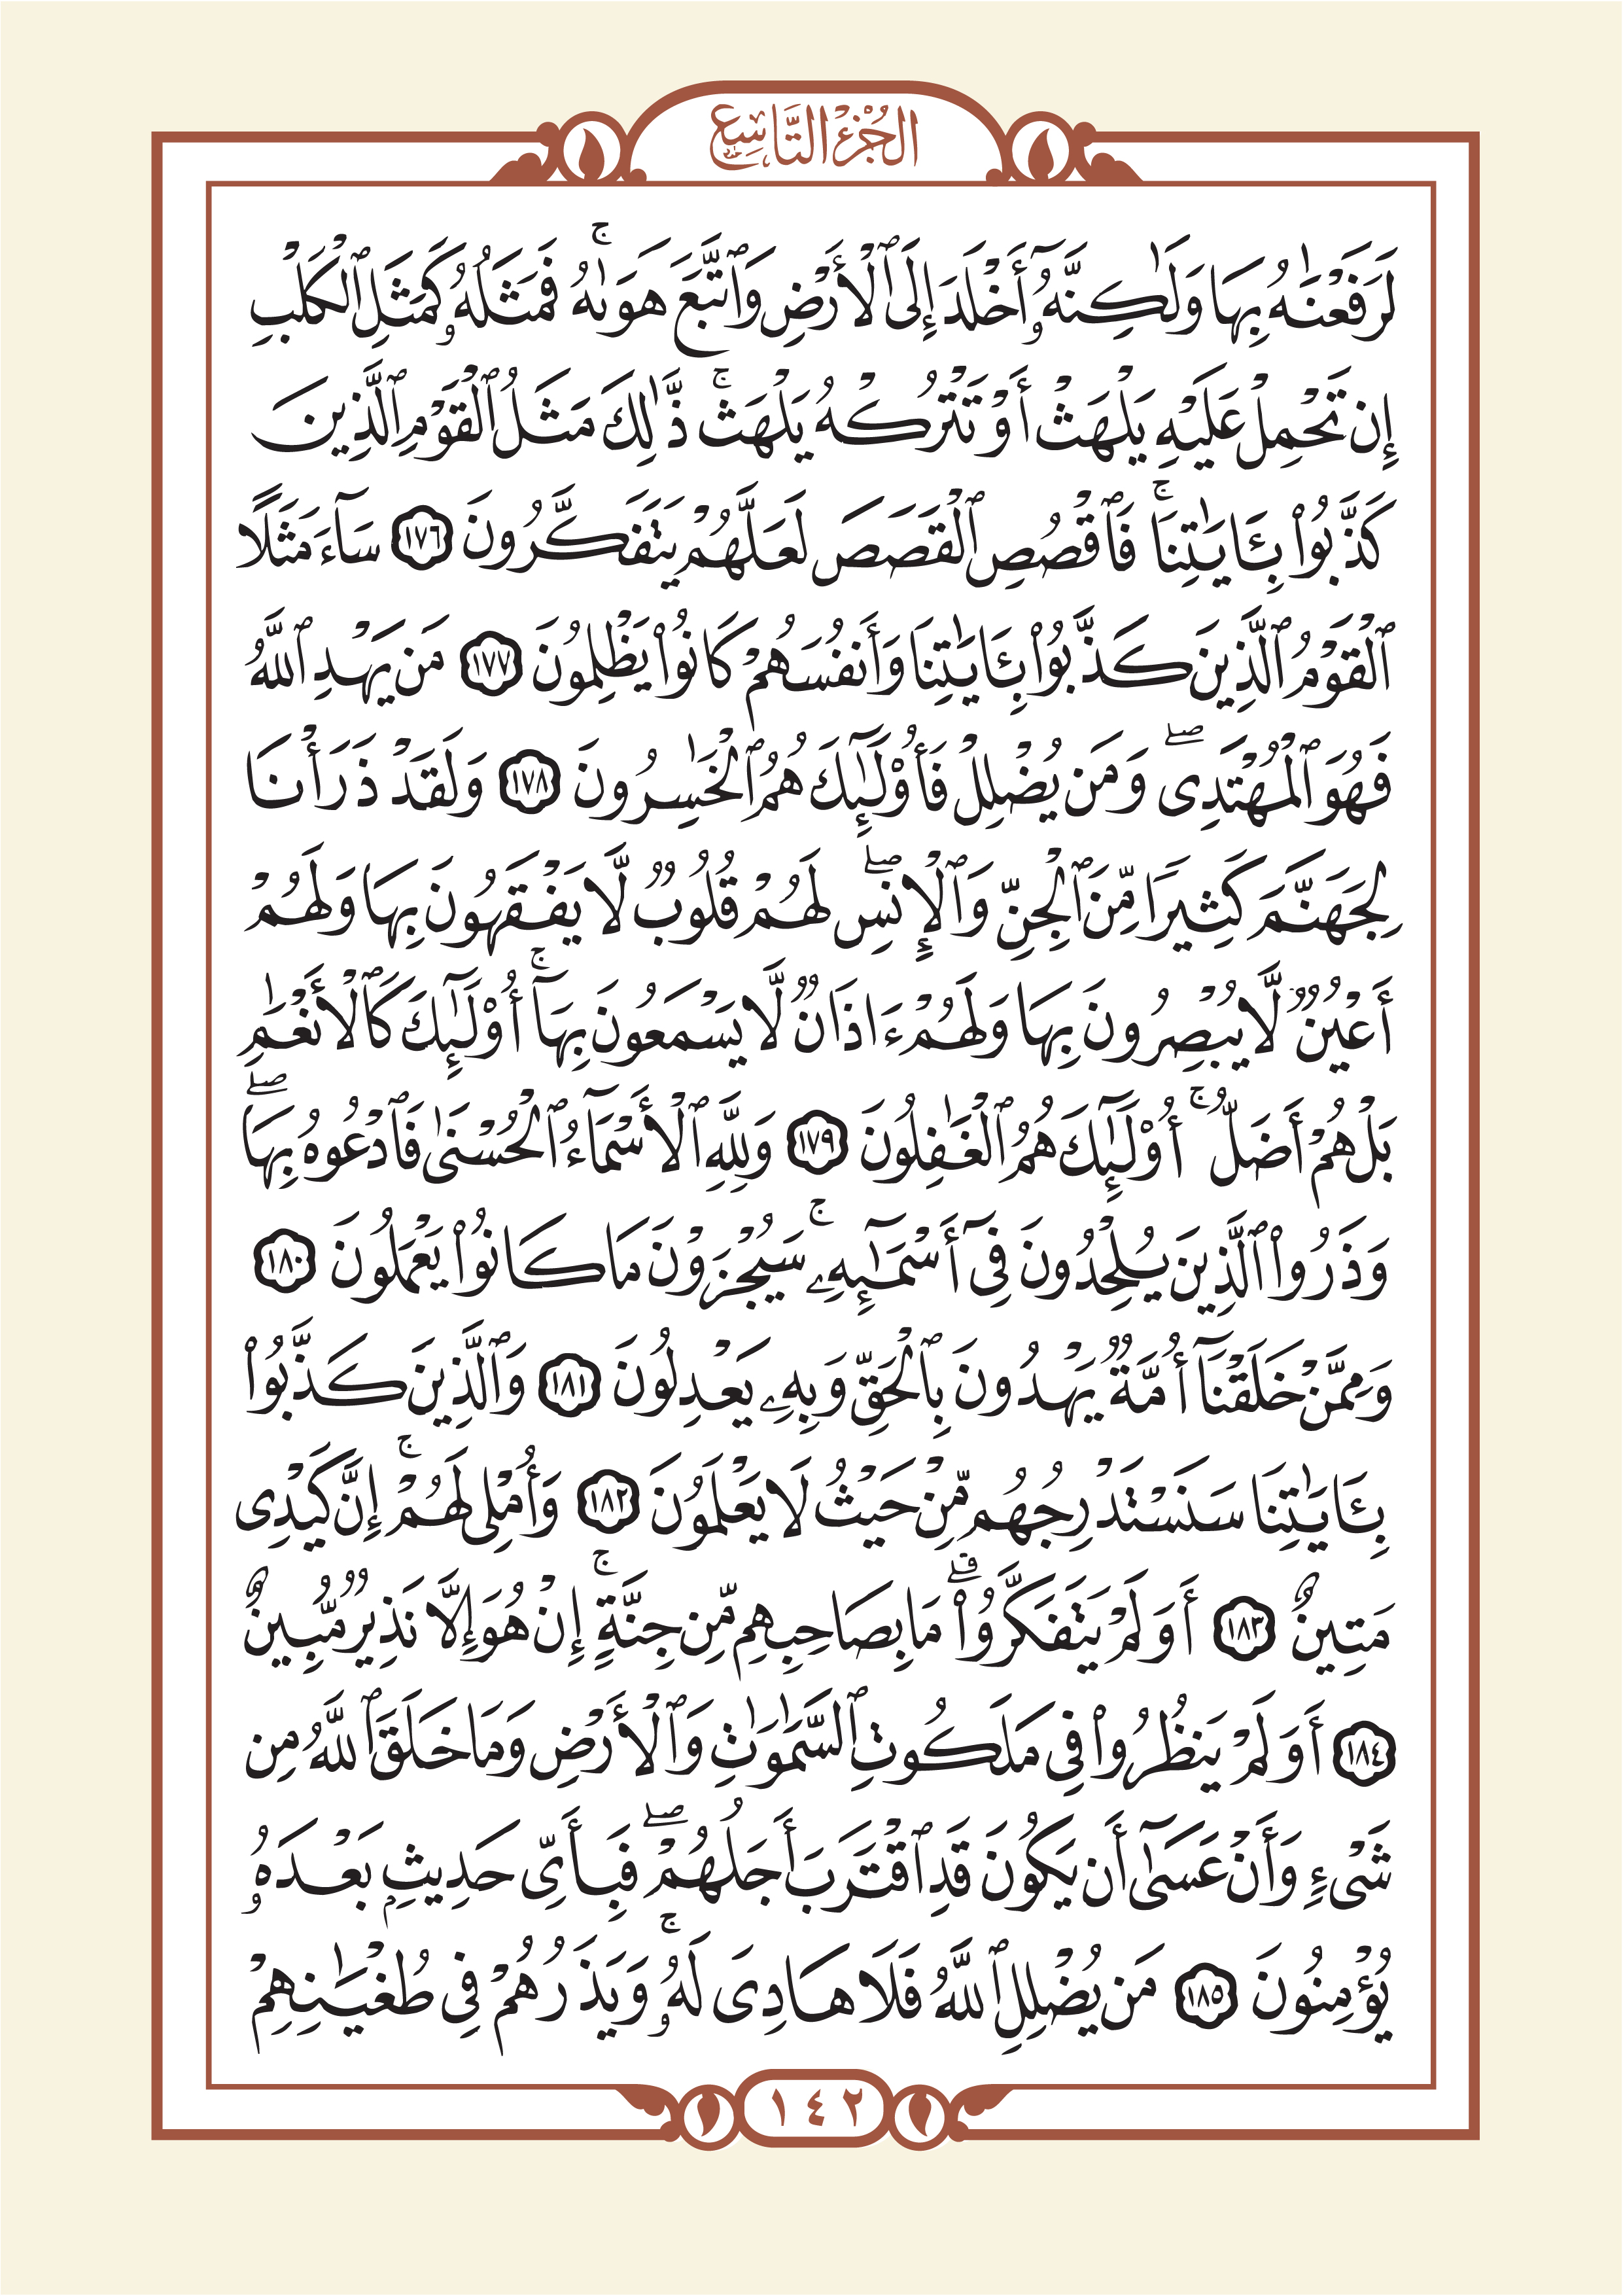 الجُزْءُ التَّاسِع
لَرَفَعْنَٰهُ بِهَا وَلَٰكِنَّهُۥٓ أَخْلَدَ إِلَى ٱلْأَرْضِ وَٱتَّبَعَ هَوَىٰهُ ۚ فَمَثَلُهُۥ كَمَثَلِ ٱلْكَلْبِ
إِن تَحْمِلْ عَلَيْهِ يَلْهَثْ أَوْ تَتْرُكْهُ يَلْهَث ۚ ذَّٰلِكَ مَثَلُ ٱلْقَوْمِ ٱلَّذِينَ
كَذَّبُوا۟ بِـَٔايَٰتِنَا ۚ فَٱقْصُصِ ٱلْقَصَصَ لَعَلَّهُمْ يَتَفَكَّرُونَ ١٧٦ سَآءَ مَثَلًا
ٱلْقَوْمُ ٱلَّذِينَ كَذَّبُوا۟ بِـَٔايَٰتِنَا وَأَنفُسَهُمْ كَانُوا۟ يَظْلِمُونَ ١٧٧ مَن يَهْدِ ٱللَّهُ
فَهُوَ ٱلْمُهْتَدِى ۖ وَمَن يُضْلِلْ فَأُو۟لَٰٓئِكَ هُمُ ٱلْخَٰسِرُونَ ١٧٨ وَلَقَدْ ذَرَأْنَا
لِجَهَنَّمَ كَثِيرًا مِّنَ ٱلْجِنِّ وَٱلْإِنسِ ۖ لَهُمْ قُلُوبٌ لَّا يَفْقَهُونَ بِهَا وَلَهُمْ
أَعْيُنٌ لَّا يُبْصِرُونَ بِهَا وَلَهُمْ ءَاذَانٌ لَّا يَسْمَعُونَ بِهَآ ۚ أُو۟لَٰٓئِكَ كَٱلْأَنْعَٰمِ
بَلْ هُمْ أَضَلُّ ۚ أُو۟لَٰٓئِكَ هُمُ ٱلْغَٰفِلُونَ ١٧٩ وَلِلَّهِ ٱلْأَسْمَآءُ ٱلْحُسْنَىٰ فَٱدْعُوهُ بِهَا ۖ
وَذَرُوا۟ ٱلَّذِينَ يُلْحِدُونَ فِىٓ أَسْمَٰٓئِهِۦ ۚ سَيُجْزَوْنَ مَا كَانُوا۟ يَعْمَلُونَ ١٨٠
وَمِمَّنْ خَلَقْنَآ أُمَّةٌ يَهْدُونَ بِٱلْحَقِّ وَبِهِۦ يَعْدِلُونَ ١٨١ وَٱلَّذِينَ كَذَّبُوا۟
بِـَٔايَٰتِنَا سَنَسْتَدْرِجُهُم مِّنْ حَيْثُ لَا يَعْلَمُونَ ١٨٢ وَأُمْلِى لَهُمْ ۚ إِنَّ كَيْدِى
مَتِينٌ ١٨٣ أَوَلَمْ يَتَفَكَّرُوا۟ ۗ مَا بِصَاحِبِهِم مِّن جِنَّةٍ ۚ إِنْ هُوَ إِلَّا نَذِيرٌ مُّبِينٌ
١٨٤ أَوَلَمْ يَنظُرُوا۟ فِى مَلَكُوتِ ٱلسَّمَٰوَٰتِ وَٱلْأَرْضِ وَمَا خَلَقَ ٱللَّهُ مِن
شَىْءٍ وَأَنْ عَسَىٰٓ أَن يَكُونَ قَدِ ٱقْتَرَبَ أَجَلُهُمْ ۖ فَبِأَىِّ حَدِيثٍۭ بَعْدَهُۥ
يُؤْمِنُونَ ١٨٥ مَن يُضْلِلِ ٱللَّهُ فَلَا هَادِىَ لَهُۥ ۚ وَيَذَرُهُمْ فِى طُغْيَٰنِهِمْ
١٤٢